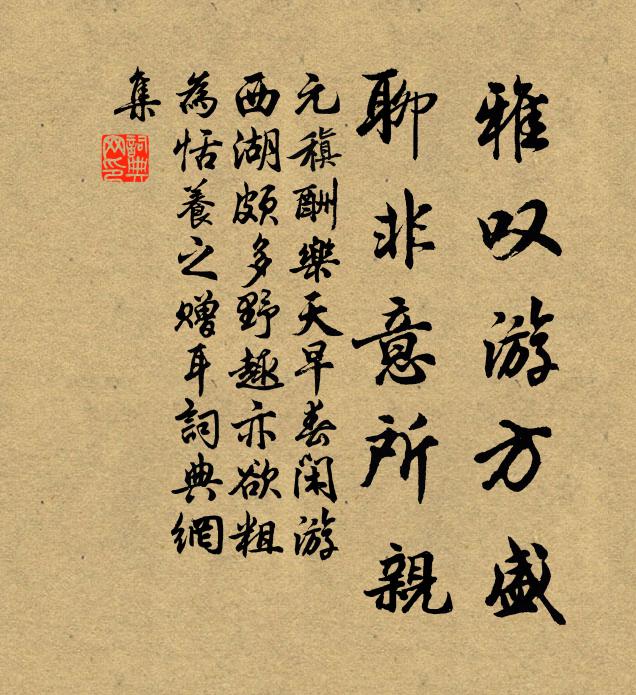 雅叹游方盛
聊非意所親
元稹酬樂天早春閑游
西湖頗多野趣亦欲粗
為恬養之贈耳詞典網
集
詞典
网印